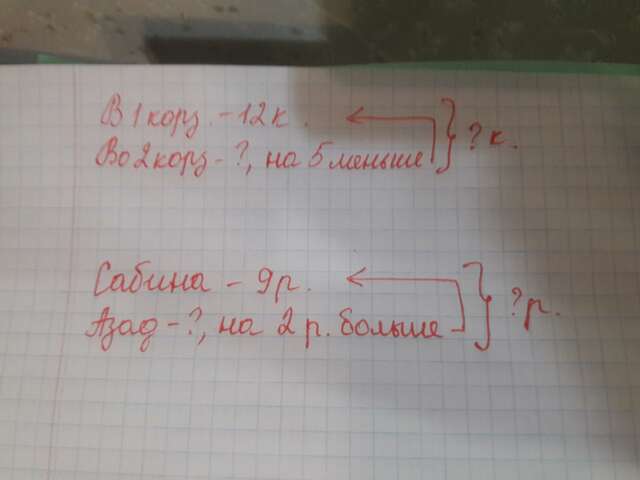 В 1 корз. - 12 к.
Во 2 корз - ?, на 5 меньше
? к.
Сабина - 9 р.
Азад - ?, на 2 р. больше
? р.